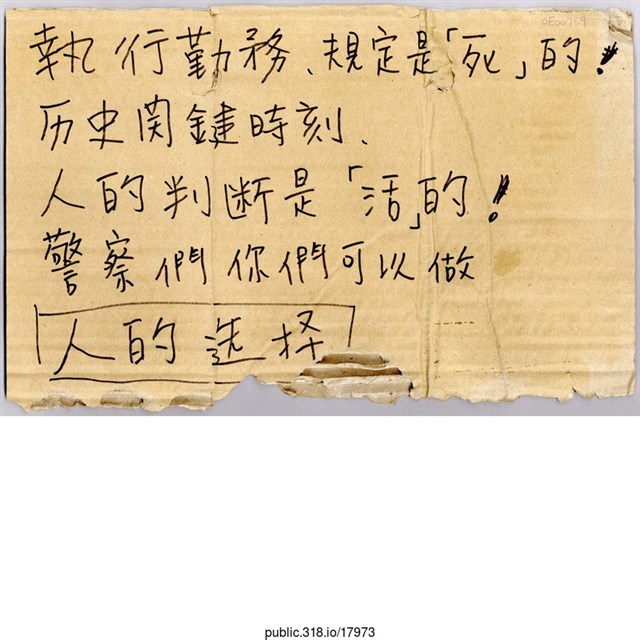 執行勤務、規定是「死」的！
历史関鍵時刻、
人的判断是「活」的！
警察們你們可以做
人的选择
public.318.io/17973